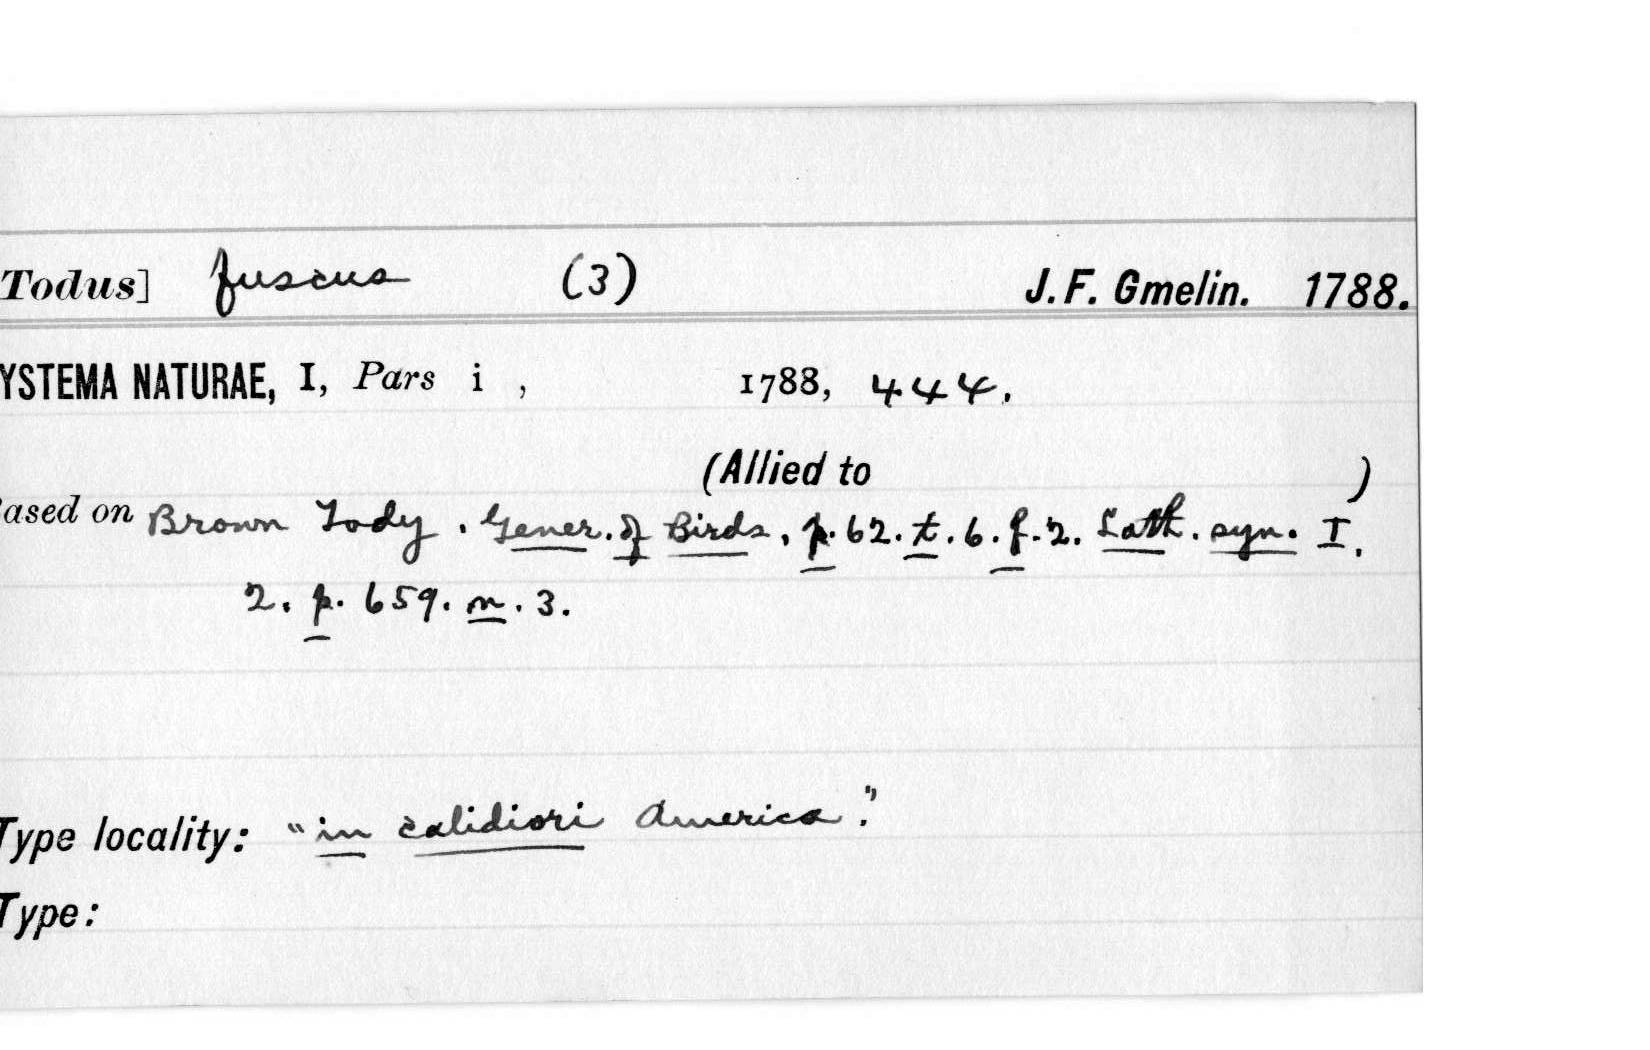 Todus] fuscus (3) J. F. Gmelin. 1788.
YSTEMA NATURAE, I, Pars i , 1788, 444.
(Allied to )
ased on Brown Tody. Gener. of Birds, p. 62. t. 6. f. 2. Lath. syn. I.
2. p. 659. n. 3.
Type locality: "in calidiori America."
Type: